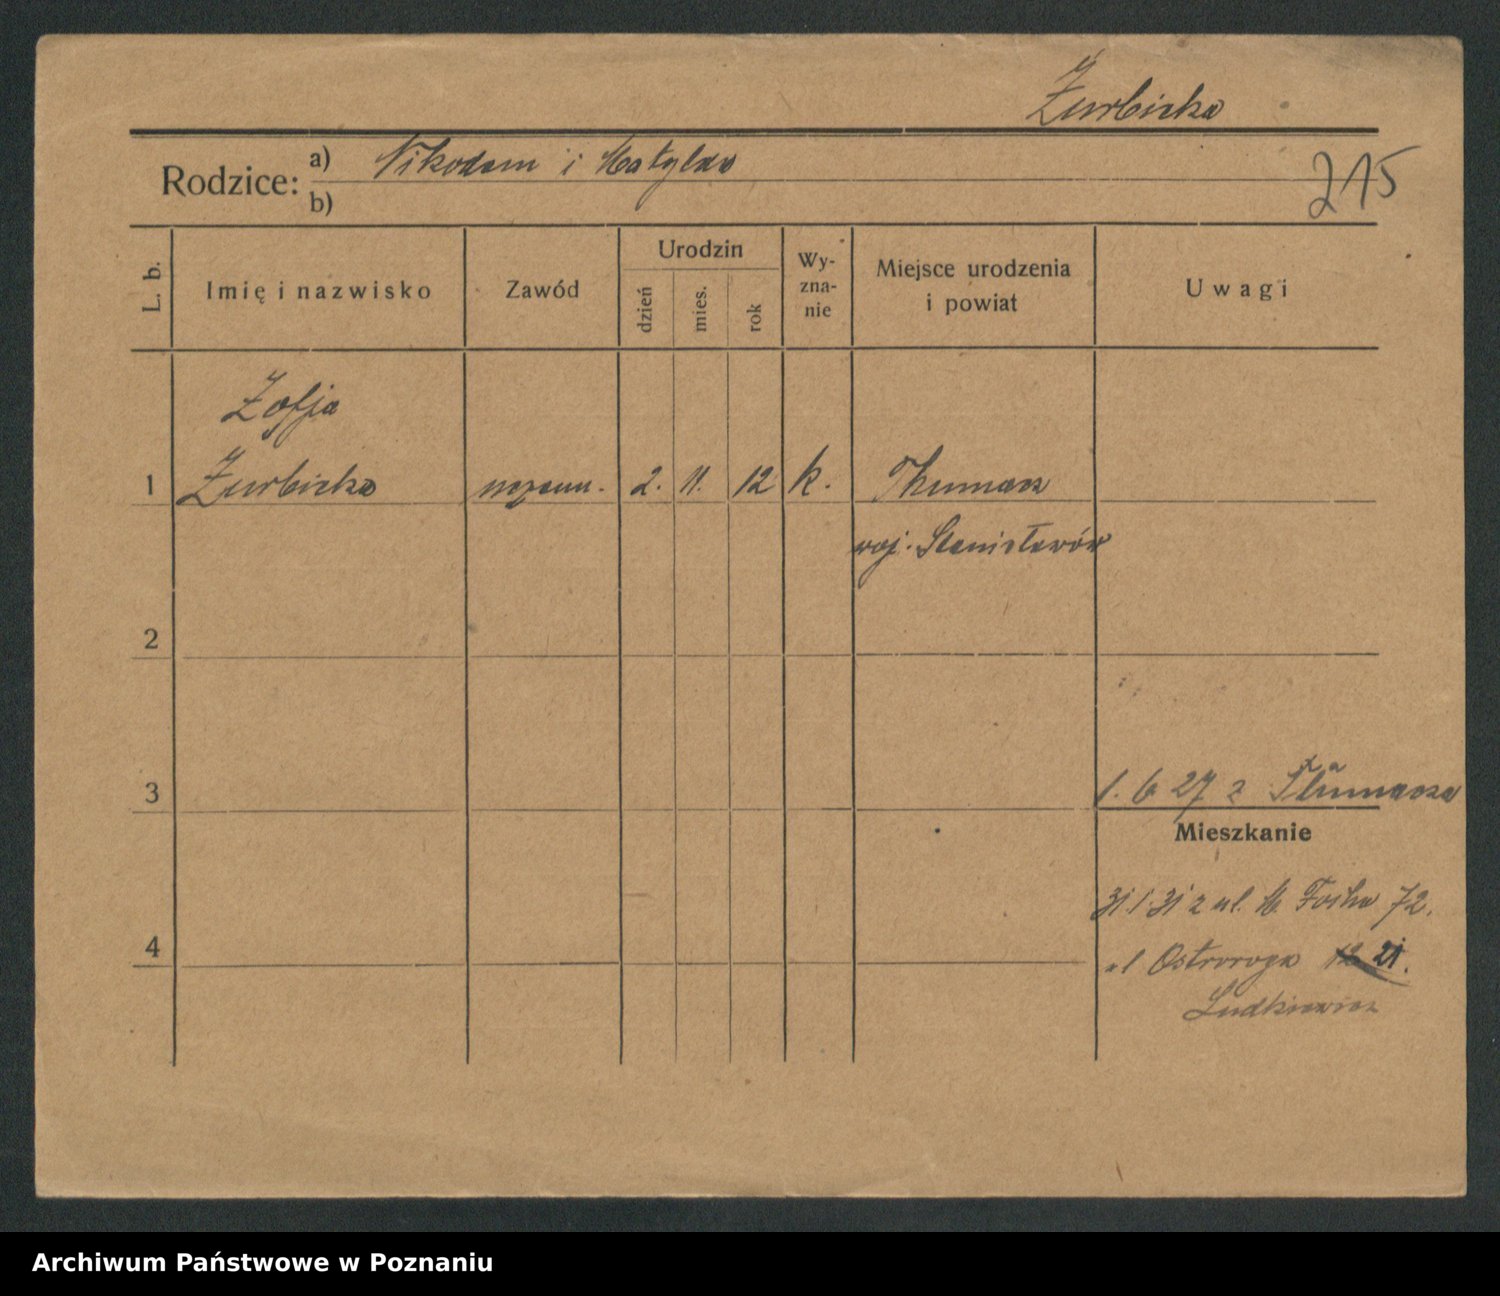 Żurbicka
Rodzice: a) Nikodem i Matylda
b)
215
L. b. Imię i nazwisko Zawód Urodzin dzień mies. rok Wyznanie Miejsce urodzenia i powiat Uwagi
Zofja
1 Żurbicka 2. 11. 12 k. Tłumacz
woj. Stanisławów
2
3 1. 6 27 z Tłumacza
Mieszkanie
31 1 31 z ul. M. Focha 72.
4 ul Ostroroga 12 21.
Ludkiewicz
Archiwum Państwowe w Poznaniu